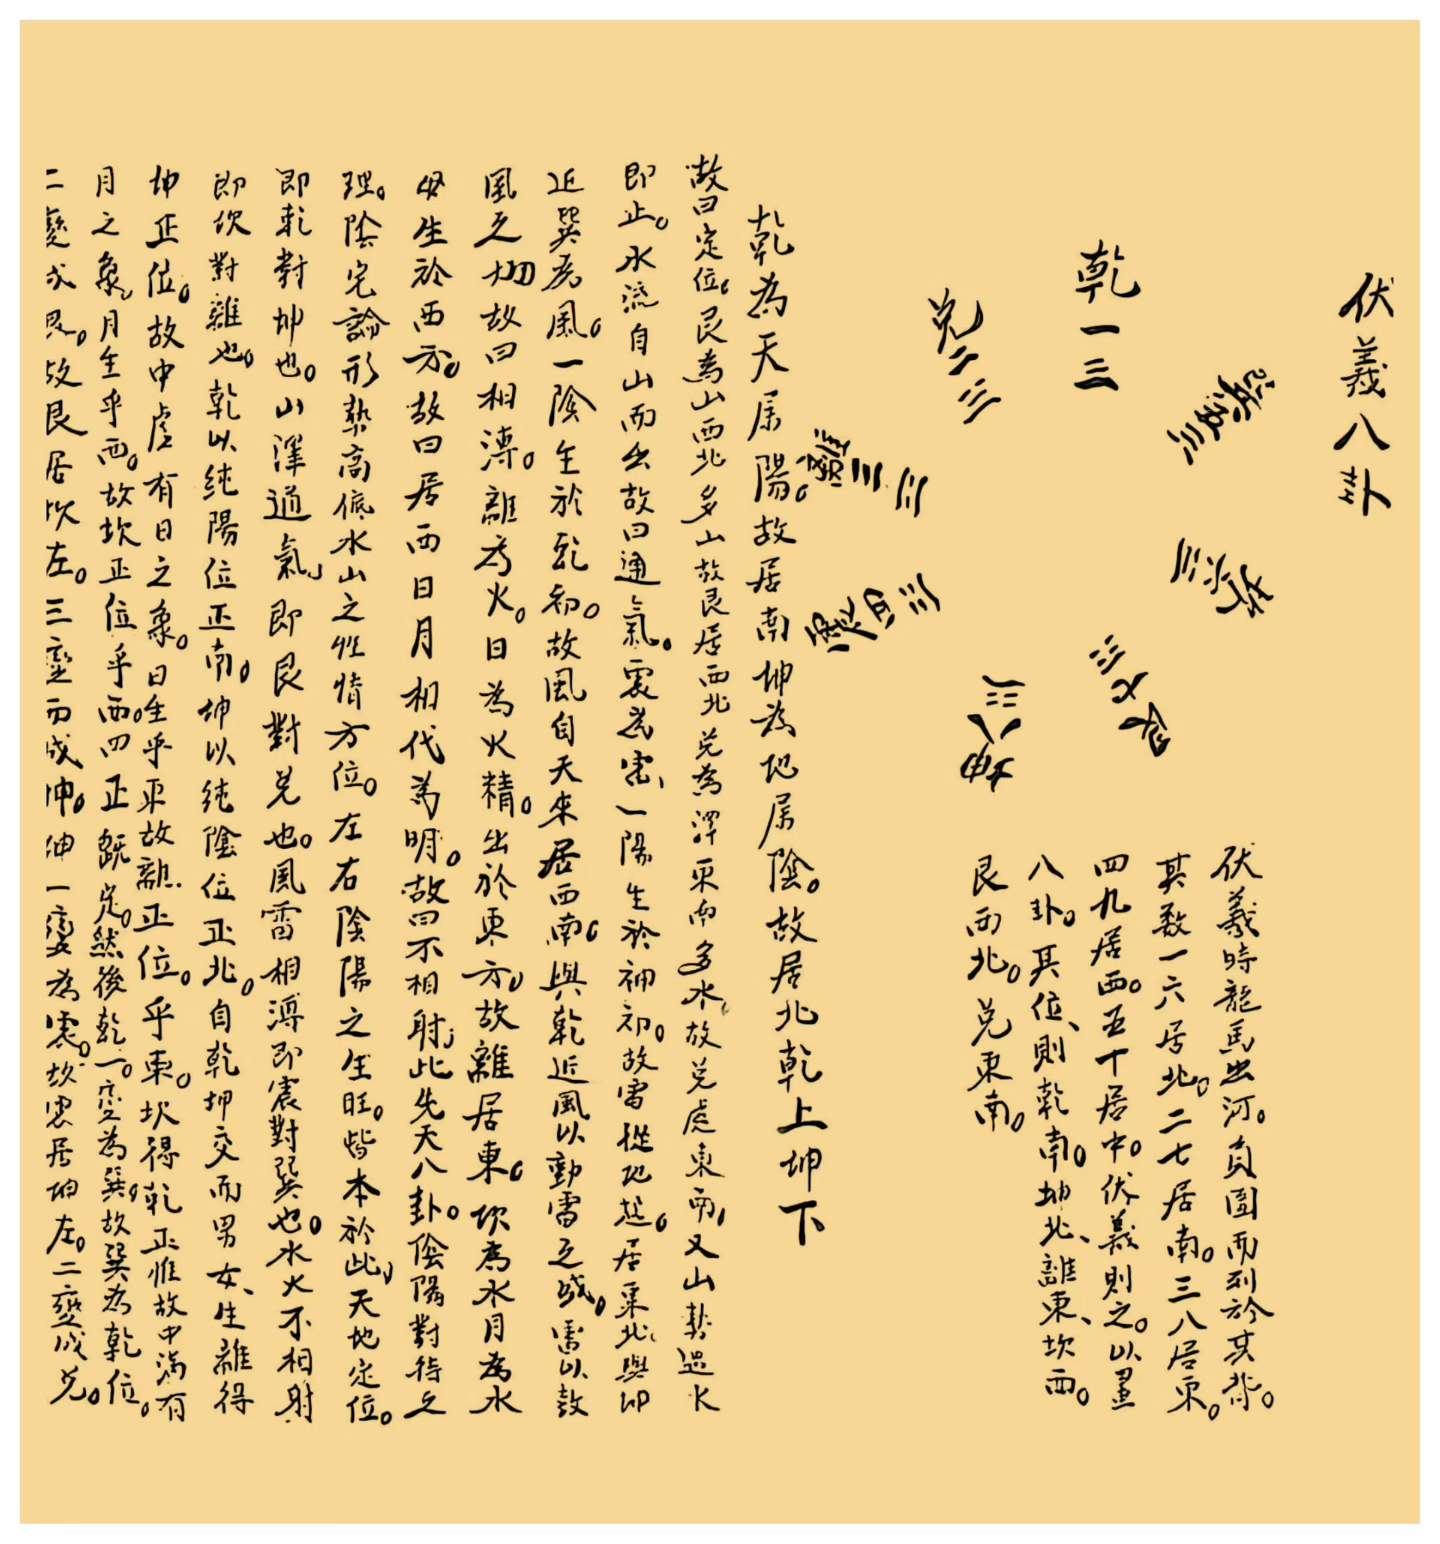 伏羲八卦
乾一三
兌二三
離三三
震四三
巽五三
坎六三
艮七三
坤八三
伏羲時龍馬出河。負圖而列於其背。
其数一六居北。二七居南。三八居東。
四九居西。五十居中。伏羲則之。以畫
八卦。其位、則乾南。坤北、離東、坎西。
艮西北。兌東南。
乾為天屬陽。故居南坤為地屬陰。故居北乾上坤下
故曰定位。艮為山西北多山故艮居西北兌為澤東南多水。故兌處東南。又山勢遇水
即止。水流自山而出故曰通氣。震為雷、一陽生於坤初。故雷從地起。居東北與坤
近巽為風。一陰生於乾初。故風自天來居西南。與乾近風以動雷之
風之故曰相薄。離為火。日為火精。出於東方。故離居東。坎為水月為水
母生於西方。故曰居西日月相代為明。故曰不相射；此先天八卦。陰陽對待之
理。陰宅論形勢高低水山之性情方位。左右陰陽之生旺。皆本於此，天地定位。
即乾對坤也。山澤通氣，即艮對兌也。風雷相薄即震對巽也。水火不相射
即坎對離也。乾以純陽位正南。坤以純陰位正北。自乾坤交而男女、生離得
坤正位。故中虛有日之象。日生乎東故離正位。乎東。坎得乾正惟故中滿有
月之象。月生乎西。故坎正位乎西。四正既定。然後乾一。變為巽。故巽為乾位。
二變成艮。故艮居坎左。三變而成坤。坤一變為震。故震居坤左。二變成兌。